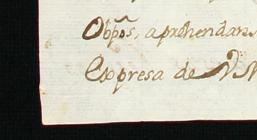 Obpõs, aprehendan
Expresa de VM